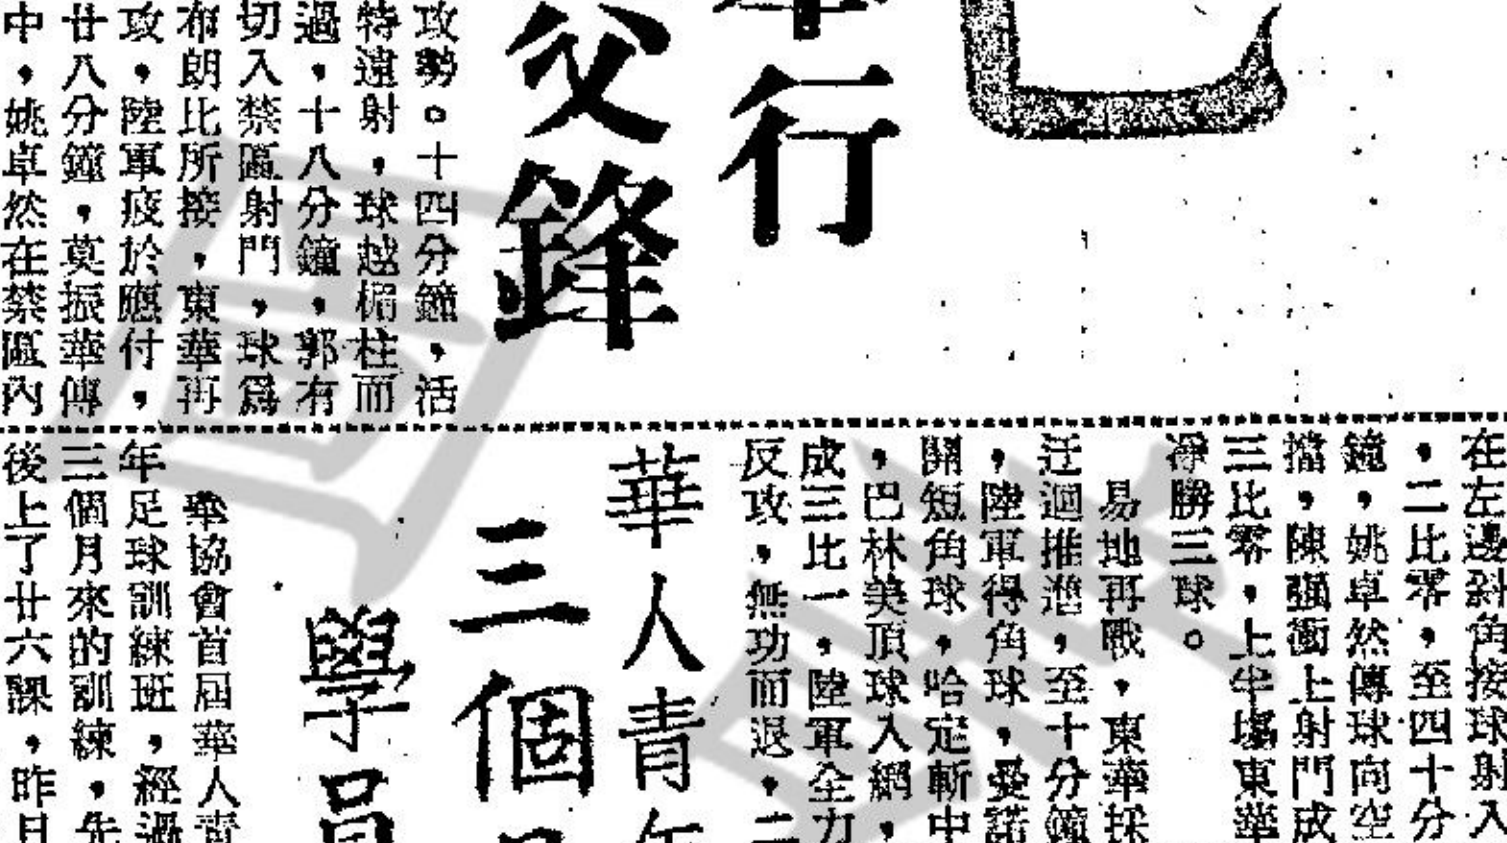 行
父鋒
攻勢。十四分鐘，活
特遠射，球越楣柱而
過，十八分鐘，郭有
切入禁區射門，球爲
布朗比所接，東華再
攻，陸軍疲於應付，
廿八分鐘，莫振華傳
中，姚卓然在禁區內
在左邊斜角接球射入
，二比零，至四十分
鐘，姚卓然傳球向空
擋，陳强衝上射門成
三比零，上半塲東華
淨勝三球。
易地再戰，東華採
迂迴推進，至十分鐘
，陸軍得角球，曼諾
開短角球，哈定斬中
，巴林美頂球入網，
成三比一，陸軍全力
反攻，無功而退，二
華人青年
三個
學員
華協會首屆華人青
年足球訓練班，經過
三個月來的訓練，先
後上了廿六課，昨日